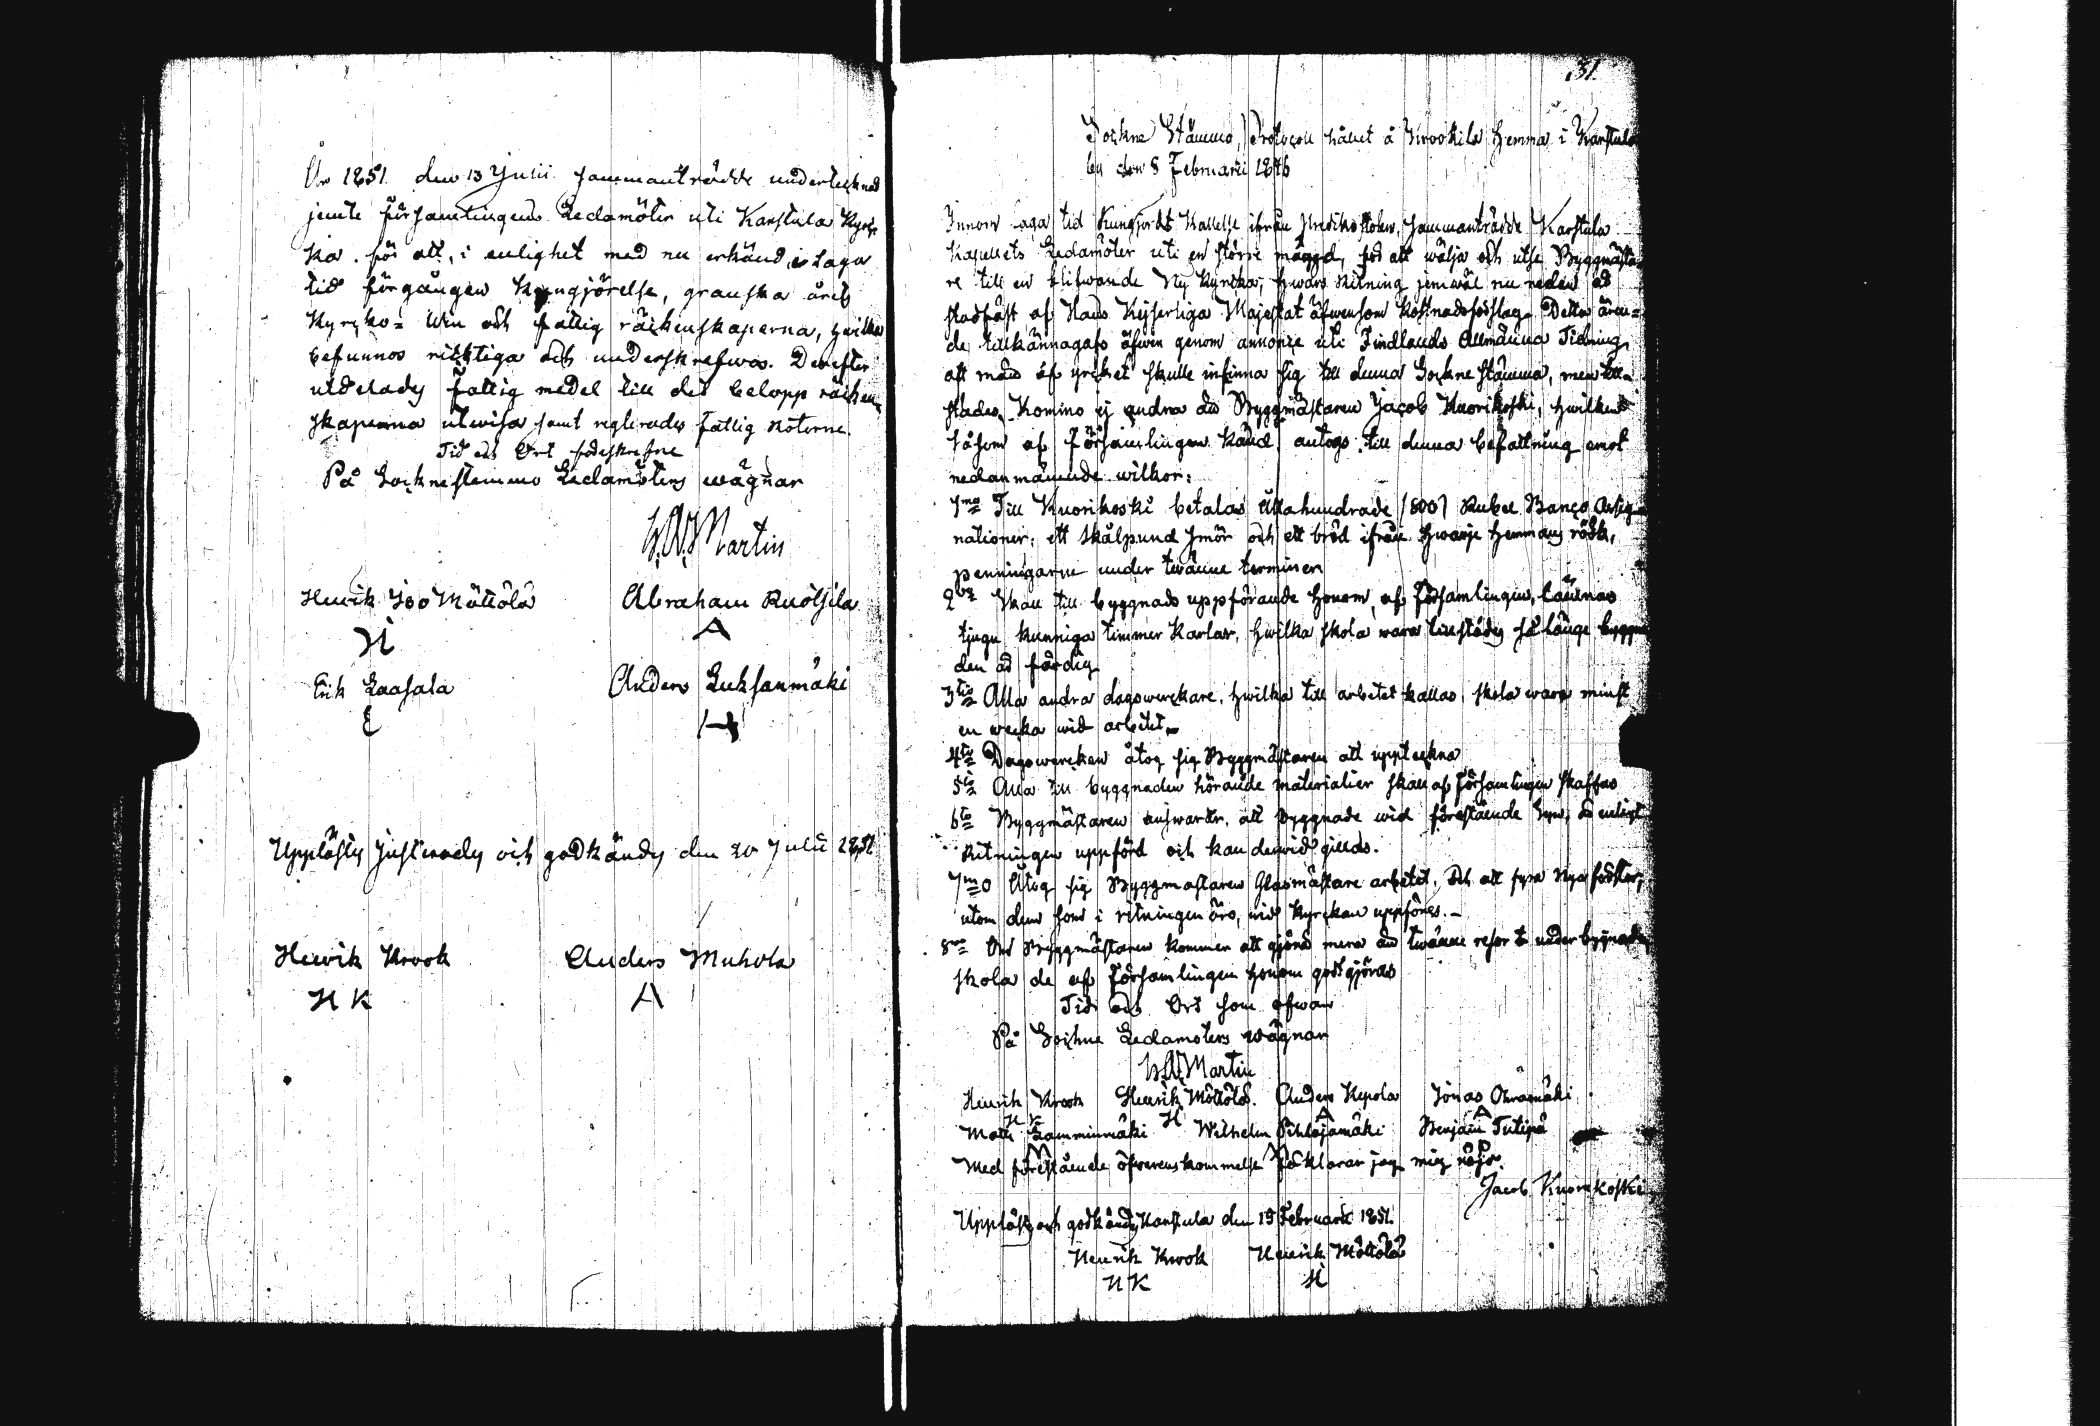 År 1851 den 13 Julii sammanträdde undertecknad
jemte församlingens Ledamöter uti Karstula Kyrc-
ka för att, i enlighet med nu erkänd, i Laga
tid förgången Kungjörelse, granska årets
Kyrcko- Win och fattig räckenskaperna, hwilka
befunnos ricktiga och underskrefwos. Derefter
utdelades fattig medel till det belopp räcken-
skaperna utwisa samt reglerades fattig rotorne.
Tid och Ort
På Sockne stemmo Ledamöters wägnar
Martin
Henrik Iso Möttölä Abraham Ruotsila
H A
Erik Laasala Anders Luksanmäki
E
Upplästes Justerades och godkändes den 20 Julii 1851
Henrik Krook Anders Muhola
H K A
31.
Sockne Stämmo Protocoll hållet å Krookila hemma i Karstula
by den 8 Februarii 1846
Innom laga tid Kungjordt Kallelse ifrån Predikostolen, sammanträdde Karstula
Kapellets Ledamöter uti en större mängd, för att wälja och utse Byggmästa-
re till en blifwande Ny Kyrcka, hwars Ritning jemwäl nu redan är
stadfäst af Hans Kejserliga Majestät äfwensom Kostnadsförslag. Detta ären-
de tillkännagafs äfwen genom annonce uti Findlands Allmänna Tidning
att män af yrcket skulle infinna sig till denna Sockne stämma, men till-
städes Kommo ej andra än Byggmästaren Jacob Kuorikoski, hwilken
såsom af Församlingen känd, antogs till denna befattning emot
nedannämnde wilkor:
1mo Till Kuorikoski betalas Åttahundrade /800/ Rubel Banco Assig-
nationer, ett skålpund smör och ett bröd ifrån hwarje hemmans röök,
penningarne under twänne terminer
2do Skall till byggnads uppförande honom, af Församlingen, lämnas
tjugu kunniga timmer Karlar, hwilka skola wara tillstädes så länge byggna
den är färdig
3tio Alla andra dagswerckare, hwilka till arbetet kallas, skola wara minst
en wecka wid arbetet.
4to Dagswercken åtog sig Byggmästaren att uppteckna
5to Alla till byggnaden hörande materialier skall af Församlingen skaffas
6to Byggmästaren answarar, att byggnade wid förestående Syn, är enligt
Ritningen uppförd och kan derwid gillas.
7mo Åtog sig Byggmästaren Glasmästare arbetet, och att fyra Nya fönster,
utom dem som i ritningen äro, wid kyrckan uppföres.
8vo Om Byggmästaren kommer att gjöra mera än twänne resor under byggnaden
skola de af Församlingen honom godtgjöras
Tid och Ort som ofwan
På Sockne Ledamöters wägnar
Martin
Henrik Krook Henrik Möttölä. Anders Kepola Jonas Oinasmäki
H K H A
Matts Lamminmäki Wilhelm Pihlajamäki Benjam Tulipä
M
Med förestående öfwerenskommelse förklarar jag mig nöjd.
Jacob Kuorikoski
Uppläst och godkändes Karstula den 15 Februarii 1851.
Henrik Krook Henrik Möttölä
H K H